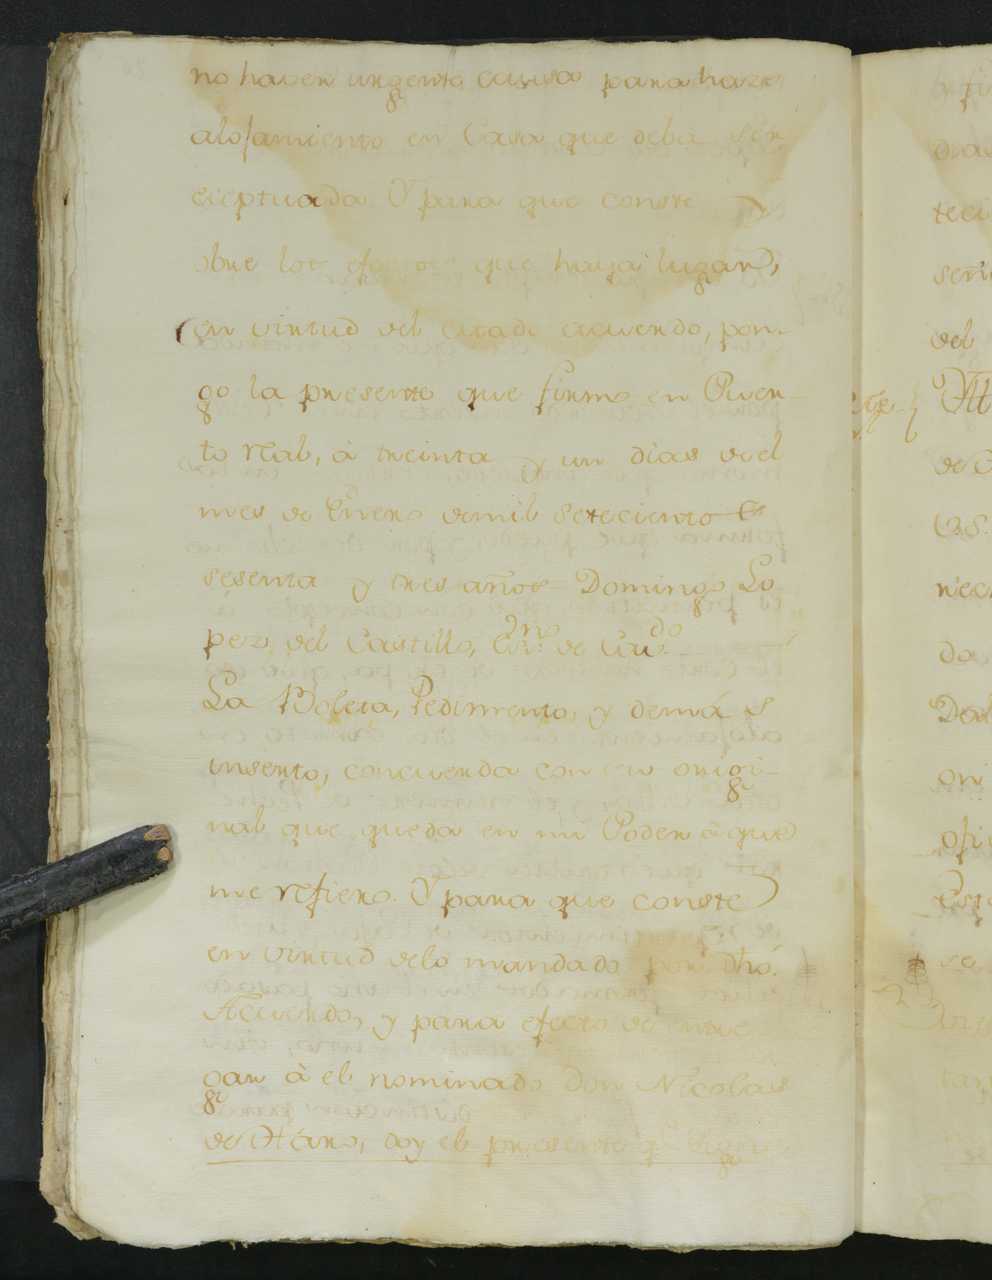 no haver urgente causa para hazer
alojamiento en Casa que deba ser
eceptuada. Y para que conste y
obre los efectos que haya lugar,
en virtud del citado acuerdo, pon-
go la presente que firmo en Puer-
to rl̃al, à treinta y un dias del
mes de Enero de mil setecientos
sesenta y tres años = Domingo Lo
pez del Castillo, de Cav.do
La Boleta, Pedimento, y demás
inserto, concuerda con su origi-
nal que queda en mi Poder à que
me refiero. Y para que conste
en virtud delo mandado por dhó.
Acuerdo, y para efecto de entre
gar à el nominado Don Nicolas
de doy el presente q.